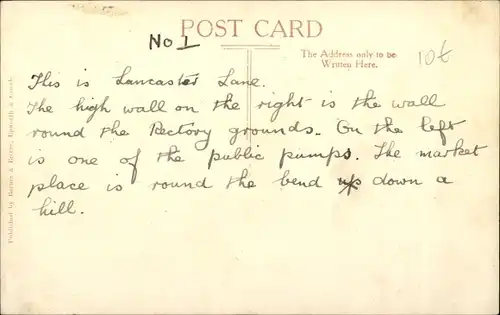 POST CARD
No 1
The Address only to be
Written Here.
10t
This is Lancaster Lane.
The high wall on the right is the wall
round the Rectory grounds. On the left
is one of the public pumps. The market
place is round the bend down a
hill.
Published by Barnes &